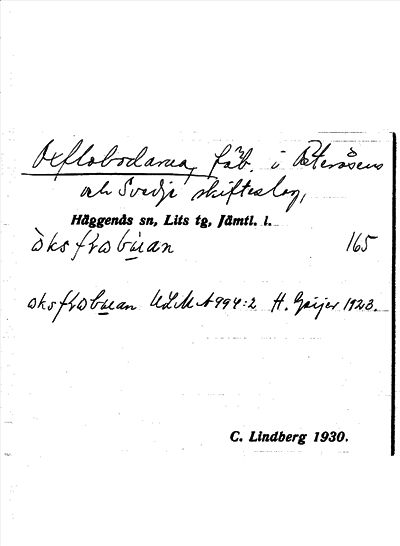 Oxflobodarna, fäb. i Österåsens
och Svedje skifteslag,
Häggenås sn, Lits tg, Jämtl. l.
òksfɫobu̲an 165
oksfɫobu̲an ULMA 994:2 H. Geijer 1923.
C. Lindberg 1930.